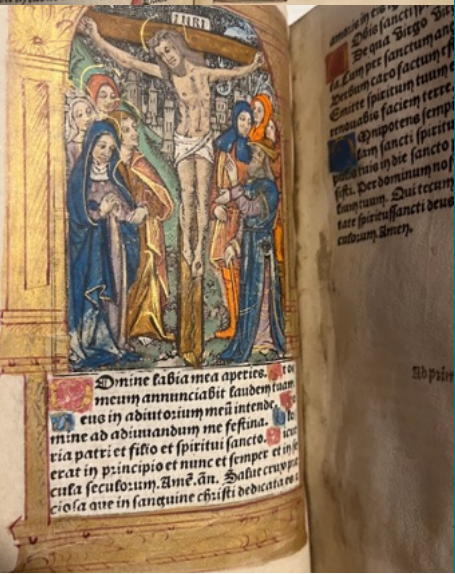 INRI
Domine labia mea aperies. Et os
meum annunciabit laudem tuam.
Deus in adiutorium meū intende.
mine ad adiuuandum me festina. Glo
ria patri et filio et spiritui sancto. Sicut
erat in principio et nunc et semper et in se
cula seculorum. Amē. añ. Salue crux pre
ciosa que in sanguine christi dedicata es
De qua virgo
ia. Cum per sanctum
Verbum caro factum
Emitte spiritum tuum
renouabis faciem terre.
Omnipotens sempi
spiritu
tuis in die sancto
Per dominum
tuum. Qui tecum
tate spiritussancti deus
culorum. Amen.